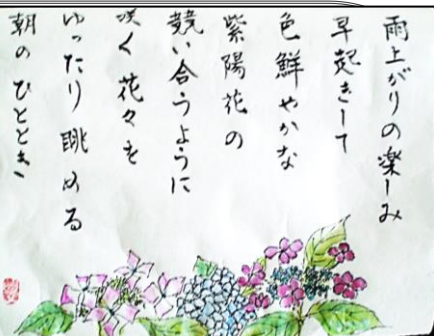 雨上がりの楽しみ
早起きして
色鮮やかな
紫陽花の
競い合うように
咲く花々を
ゆったり眺める
朝のひととき